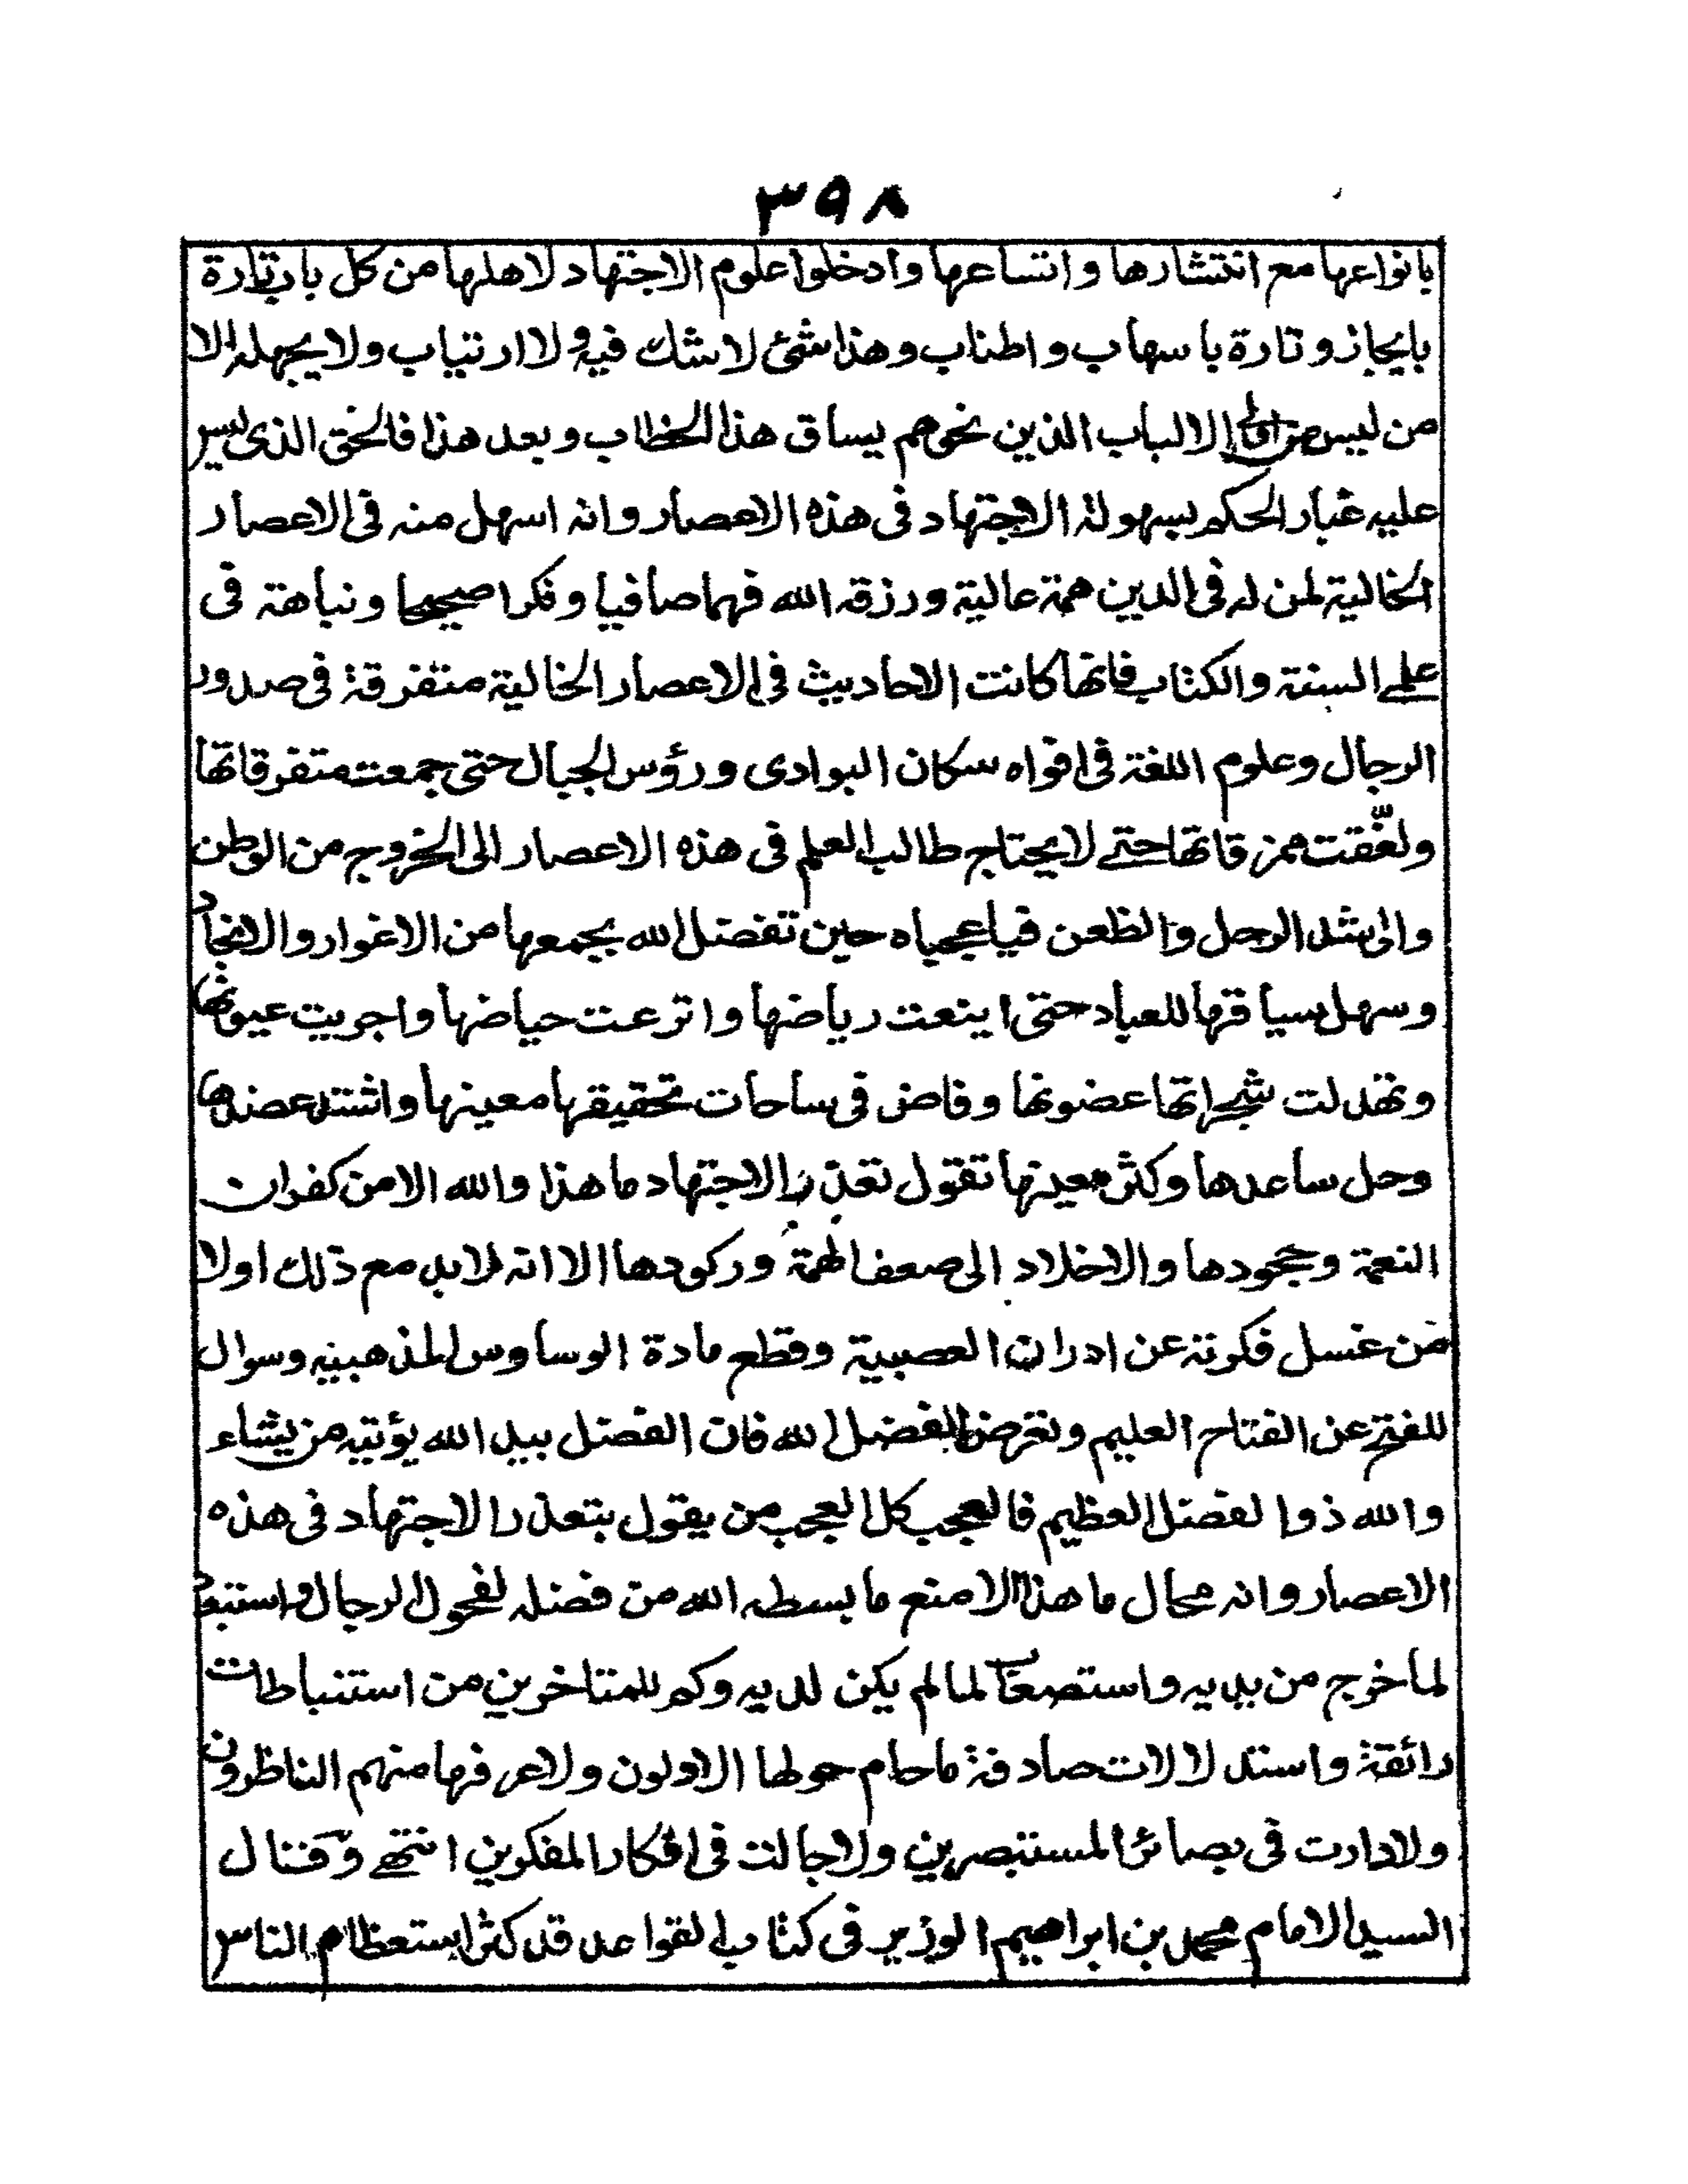 ٣٩٨
بانواعها مع انتشارها واتساعها وادخلوا علوم الاجتهاد لاهلها من كل باب تارة
بايجاز وتارة باسهاب واطناب وهذا شئ لا شك فيه ولا ارتياب ولا يجهله الا
من ليس من اولى الالباب الذين نحوهم يساق هذا الخطاب وبعد هذا فالحق الذى ليس
عليه غبار الحكم بسهولة الاجتهاد فى هذه الاعصار وانه اسهل منه فى الاعصار
الخالية لمن له فى الدين همة عالية ورزقه الله فهما صافيا وفكرا صحيحا ونباهة فى
علمي السنة والكتاب فانها كانت الاحاديث فى الاعصار الخالية متفرقة فى صدور
الرجال وعلوم اللغة فى افواه سكان البوادى ورؤس الجبال حتى جمعت متفرقاتها
ولفّقت ممزقاتها حتے لا يحتاج طالب العلم فى هذه الاعصار الى الخروج من الوطن
والى شد الرحل والظعن فيا عجباه حين تفضل الله بجمعها من الاغوار والانجاد
وسهل سياقها للعباد حتى اينعت رياضها واترعت حياضها واجريت عيونها
وتهدلت شجراتها غضونها وفاض فى ساحات تحقيقها معينها واشتد عضدها
وحل ساعدها وكثر معينها تقول تعذر الاجتهاد ما هذا والله الا من كفران
النعمة وجحودها والاخلاد الى ضعف الهمة وركودها الا انه لا بد مع ذلك اولا
من غسل فكرته عن ادران العصبية وقطع مادة الوساوس المذهبيه وسوال
للفتح عن الفتاح العليم وتعرض لفضل الله فان الفضل بيد الله يؤتيه من يشاء
والله ذو الفضل العظيم فالعجب كل العجب من يقول بتعذر الاجتهاد فى هذه
الاعصار وانه محال ما هذا الا منع ما بسطه الله من فضله لفحول الرجال واستبعاد
لما خرج من يديه واستصعاب لما لم يكن لديه وكم للمتاخرين من استنباطات
رائقة واستدلالات صادقة ما حام حولها الاولون ولا عرفها منهم الناظرون
ولا دارت فى بصائر المستبصرين ولا جالت فى افكار المفكرين انتهے وقال
السيد الامام محمد بن ابراهيم الوزير فى كتاب القواعد قد كثر استعظام الناس